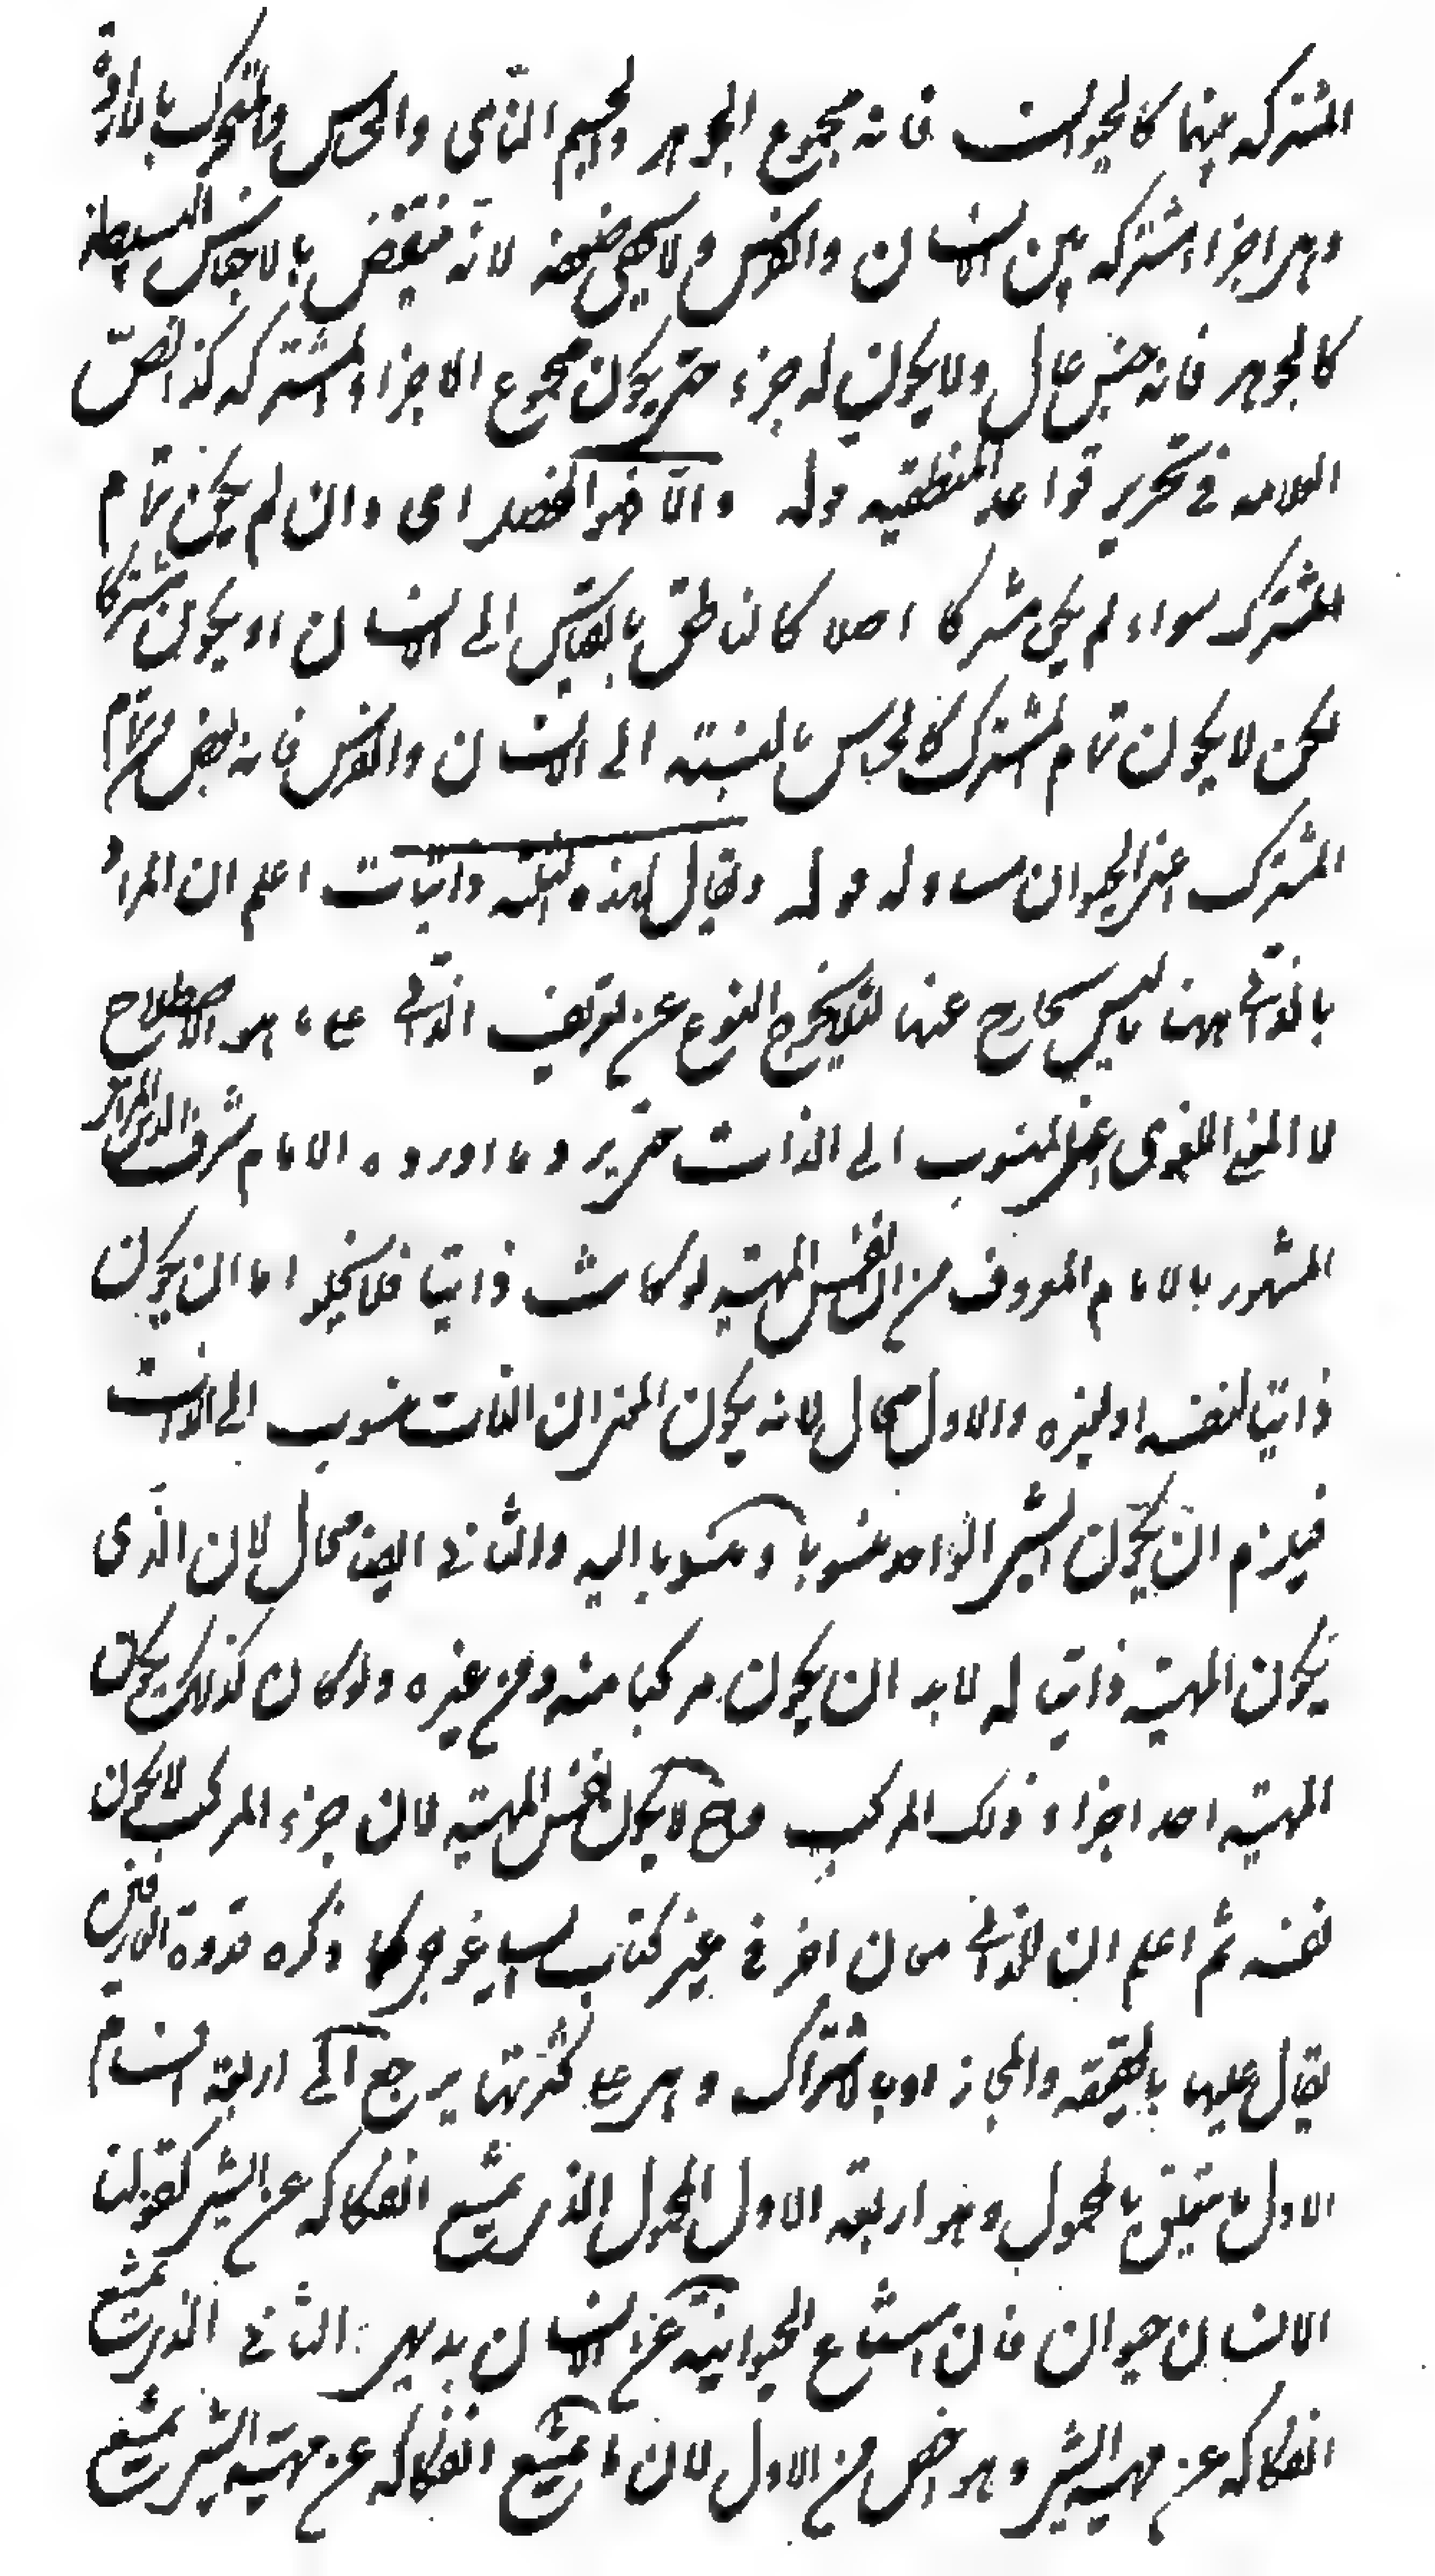 المشتركة بينهما كالحيوان فانه مجموع الجوهر والجسم النامى والحساس والمتحرك بالارادة
وهى اجزاء مشتركة بين الانسان والفرس ولا يخفى ضعفه لانه منتقض بالاجناس البسيطة
كالجوهر فانه جنس عال ولا يكون له جزء حتى يكون مجموع الاجزاء المشتركة كذا نصّ
العلامه فى تحرير قواعد المنطقيه قوله والّا فهو الفصل اى وان لم يكن تمام
المشترك سواء لم يكن مشتركا اصلا كالناطق بالقياس الى الانسان او يكون مشتركا
لكن لا يكون تمام المشترك كالحساس بالنسبة الى الانسان والفرس فانه بعض من تمام
المشترك اعنى الحيوان مساو له قوله ويقال لهذه الثلثة ذاتيات اعلم ان المراد
بالذاتى ههنا ما ليس بخارج عنها لئلا يخرج النوع عن تعريف الذاتى على ما هو الاصطلاح
لا المعنى اللغوى اعنى المنسوب الى الذات حتى يرد ما اورده الامام شرف الدين
المشهور بالامام المعروف من ان نفس المهيّة لو كانت ذاتيا فلا يخلو اما ان يكون
ذاتيا لنفسه او لغيره والاول محال لانه يكون المعنى ان الذات منسوب الى الذات
فيلزم ان يكون الشىء الواحد منسوبا ومنسوبا اليه والثانى ايضا محال لان الذى
يكون المهية ذاتيا له لابد ان يكون مركبا منه ومن غيره ولو كان كذلك يكون
المهية احد اجزاء ذلك المركب وح لا يكون نفس المهية لان جزء المركب لا يكون
نفسه ثم اعلم ان للذاتى معان اخر فى غير كتاب ايساغوجى كما ذكره قدوة العارفين
يقال عليها بالحقيقة والمجاز او بالاشتراك وهى على كثرتها يرجع الى اربعة اقسام
الاول ما يتعلق بالمحمول وهو اربعة الاول المحمول الذى يمتنع انفكاكه عن الشىء كقولنا
الانسان حيوان فان امتناع الحيوانية عن الانسان بديهى الثانى الذى يمتنع
انفكاكه عن مهية الشىء وهو اخص من الاول لان ما يمتنع انفكاكه عن مهية الشىء يمتنع